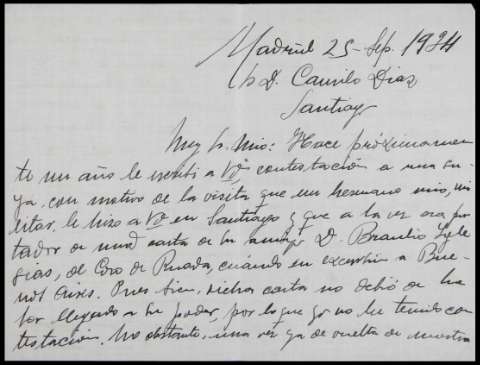 Madrid 25 - Sep. 1924
Sr D. Camilo Diaz
Santiago
Muy Sr. Mio: Hace próximamen
te un año le escribí a Vd contestación a una su-
ya, con motivo de la visita que un hermano mio, mi
litar, le hizo a Vd en Santiago y que a la vez era por
tador de una carta de su amigo D. Braulio Igle
sias, del Coro de Ruada, cuándo en excursión a Bue-
nos Aires. Pues bien, dicha carta no debió de ha
ber llegado a su poder, por lo que yo no he tenido con
testación. No obstante, una vez ya de vuelta de nuestra